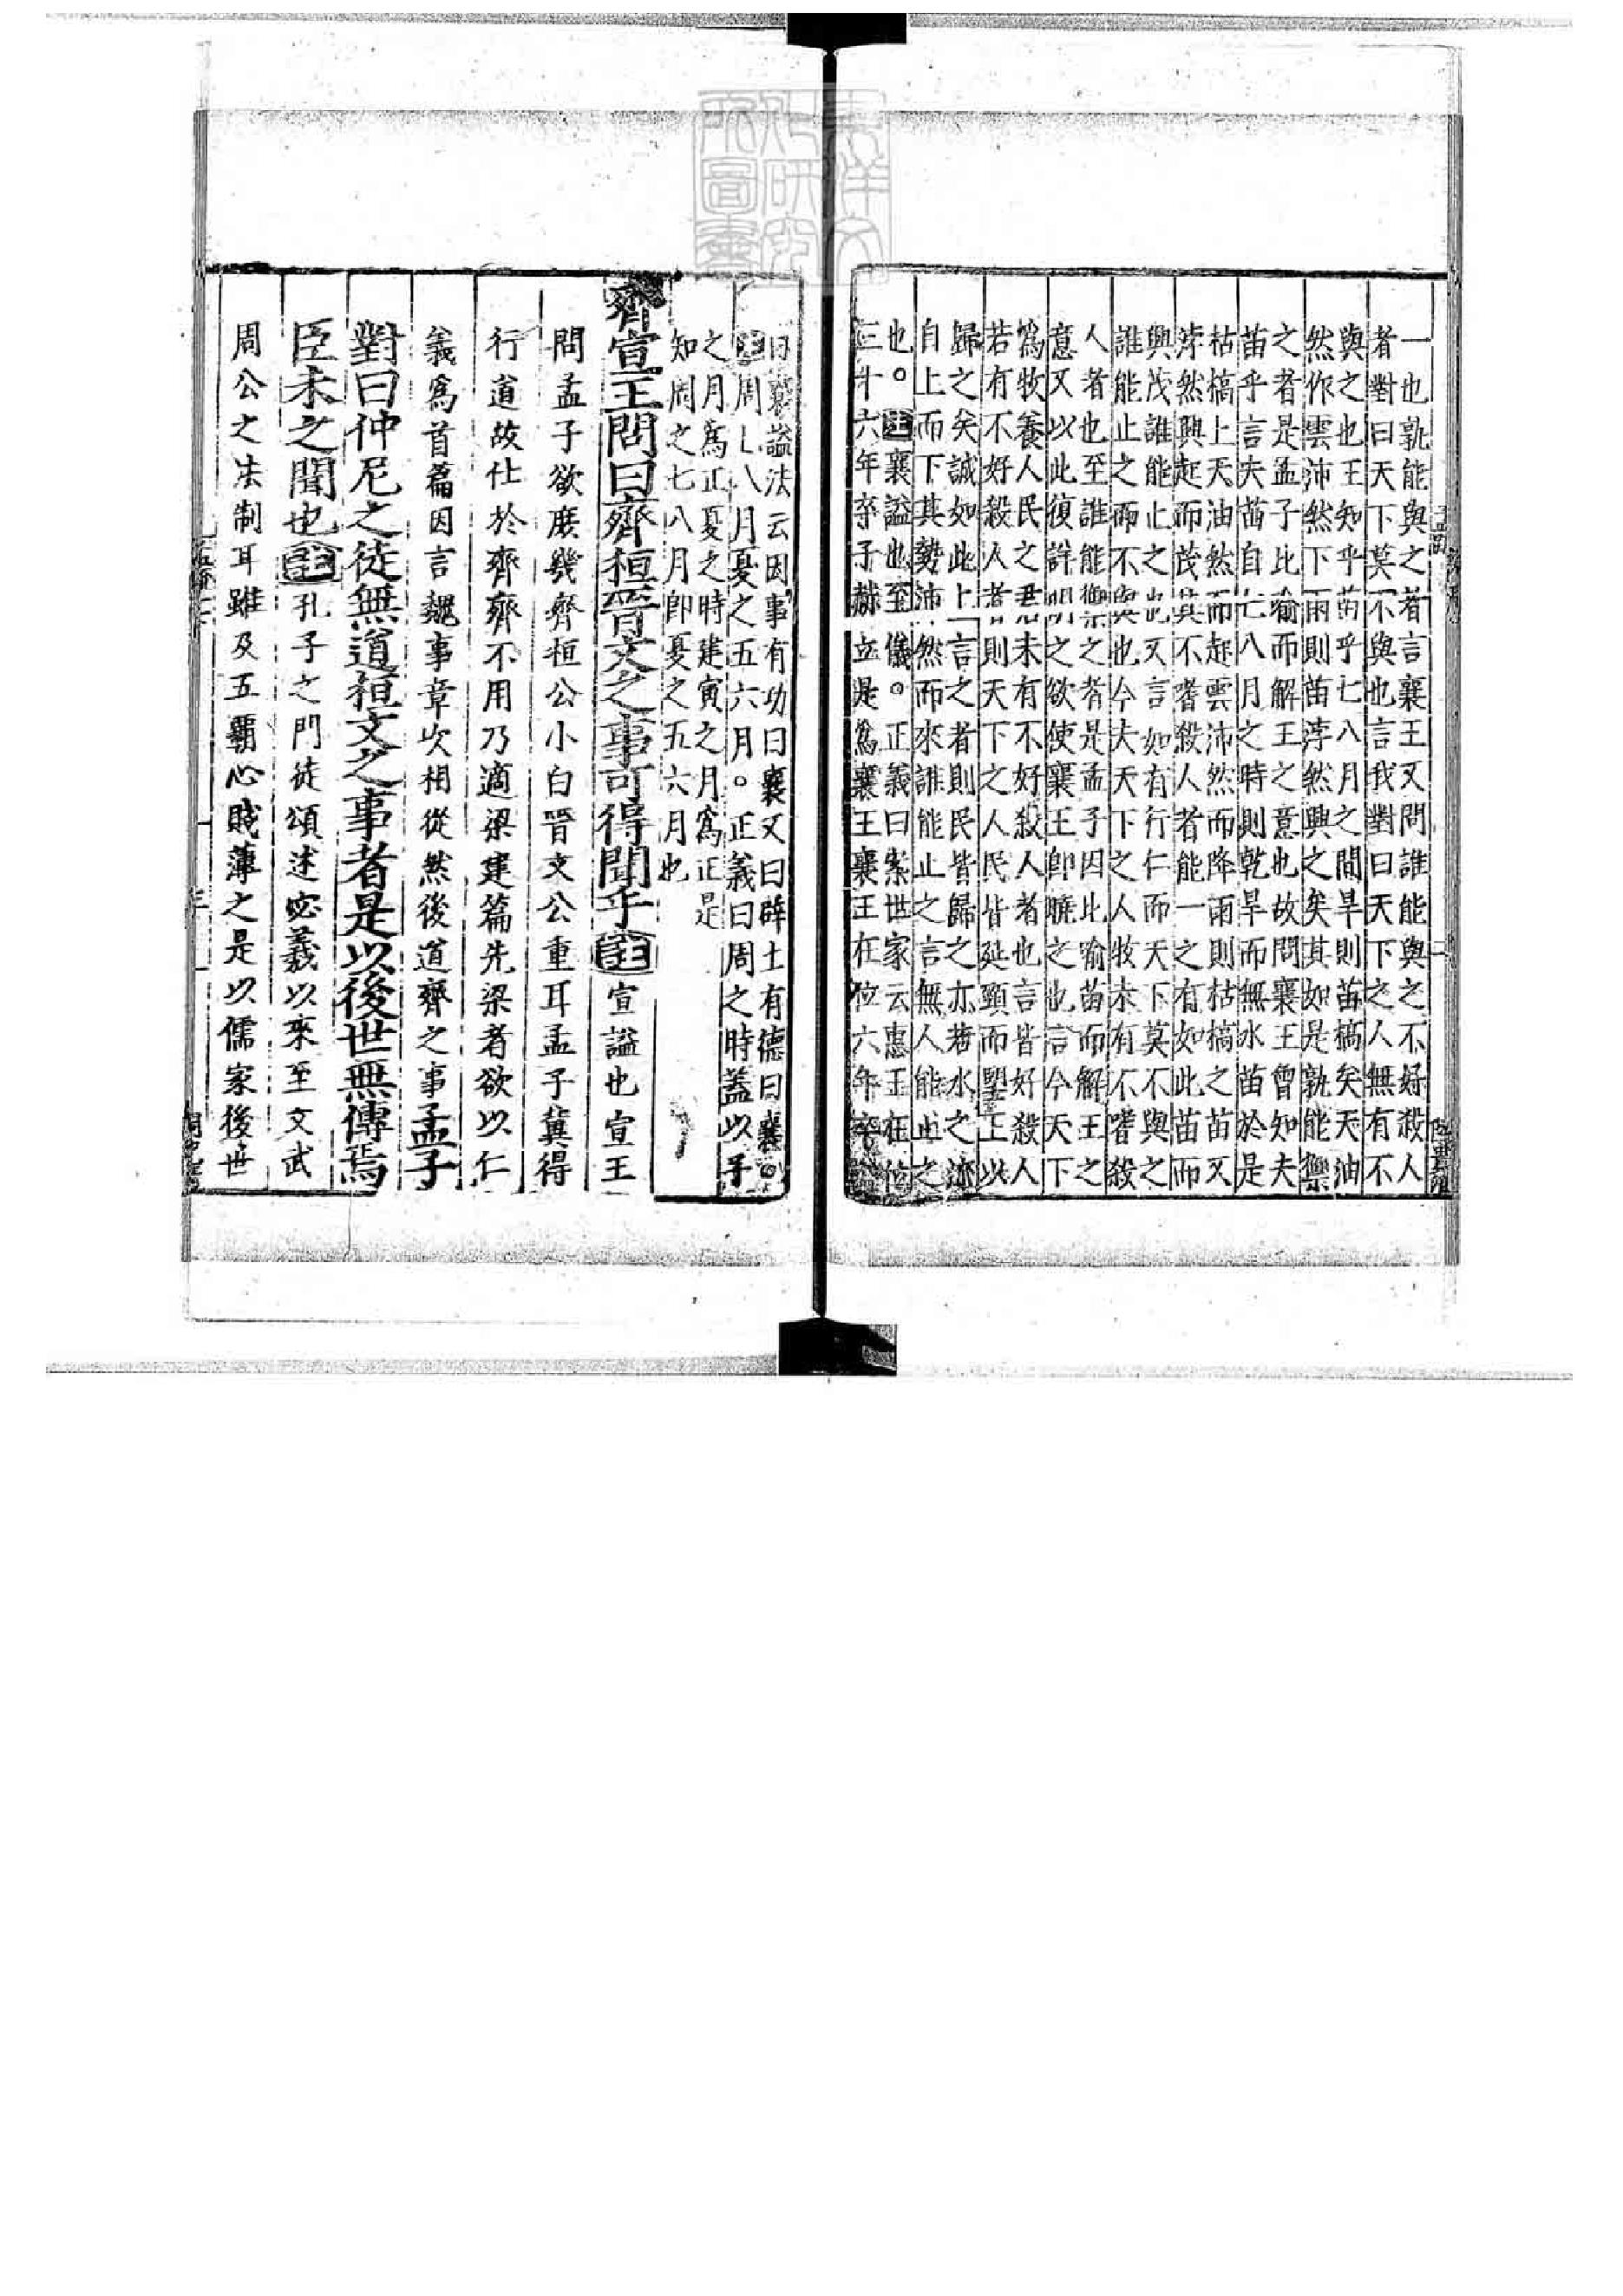 一也孰能與之者言襄王又問誰能與之不好殺人
者對曰天下莫不與也言我對曰天下之人無有不
與之也王知乎苗乎七八月之間旱則苗槁矣天油
然作雲沛然下雨則苗浡然興之矣其如是孰能禦
之者是孟子比喻而解王之意也故問襄王曾知夫
苗乎言夫苗自七八月之時則乾旱而無水苗於是
枯槁上天油然而起雲沛然而降雨則枯槁之苗又
浡然興起而茂其不嗜殺人者能一之有如此苗而
興茂誰能止之也又言如有行仁而天下莫不與之
誰能止之而不與也今夫天下之人牧未有不嗜殺
人者也至誰能禦之者是孟子因此喻苗而解王之
意又以此復詳明之欲使襄王即曉之也言今天下
為牧養人民之君未有不好殺人者也言皆好殺人
若有不好殺人者則天下之人民皆延頸而望王以
歸之矣誠如此上言之者則民皆歸之亦若水之流
自上而下其勢沛然而來誰能止之言無人能止之
也。注襄謚也至儀。正義曰案世家云惠王在位
三十六年卒子赫立是為襄王襄王在位六年卒
曰襄謚法云因事有功曰襄又曰辟土有德曰襄。
注周七八月夏之五六月。正義曰周之時蓋以子
之月為正夏之時建寅之月為正是
知周之七八月即夏之五六月也
齊宣王問曰齊桓晉文之事可得聞乎注宣謚也宣王
問孟子欲庶幾齊桓公小白晉文公重耳孟子冀得
行道故仕於齊齊不用乃適梁建篇先梁者欲以仁
義為首篇因言魏事章次相從然後道齊之事孟子
對曰仲尼之徒無道桓文之事者是以後世無傳焉
臣未之聞也注孔子之門徒頌述宓羲以來至文武
周公之法制耳雖及五霸心賤薄之是以儒家後世